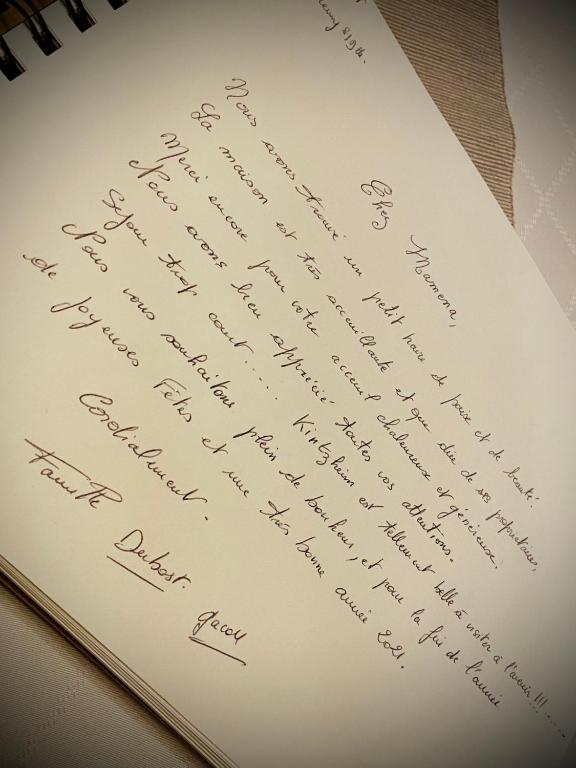 Chez Mamema,
Nous avons trouvé un petit havre de paix et de beauté.
La maison est très accueillante et que dire de ses propriétaires,
Merci encore pour votre accueil chaleureux et généreux.
Nous avons bien apprécié toutes vos attentions.
Séjour trop court..... Kintzheim est tellement belle à visiter à l'avenir!!!.....
Nous vous souhaitons plein de bonheur, et pour la fin de l'année
de Joyeuses Fêtes et une très bonne année 2021.
Cordialement.
Famille Debost.